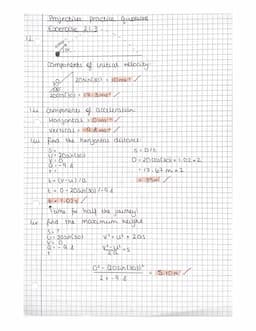 Projectiles practice questions
Exercise 21.3
components of initial velocity
20sin(30) = 10ms⁻¹ ✓
20cos(30) = 17.3ms⁻¹ ✓
components of acceleration
Horizontal = 0ms⁻²
vertical = -9.8ms⁻² ✓
find the horizontal distance
S =
U = 20sin(30)
V = 0
a = -9.8
t =
S = D/t
t = (v-u)/a
t = 0 - 20sin(30)/-9.8
t = 1.02s ✓
time for half the journey
find the maximum height
S = ?
U = 20sin(30)
V = 0
a = -9.8
t
V² = U² + 2as
V² - U² = S
2a
0² - 20sin(30)² = 5.10m ✓
2 x -9.8